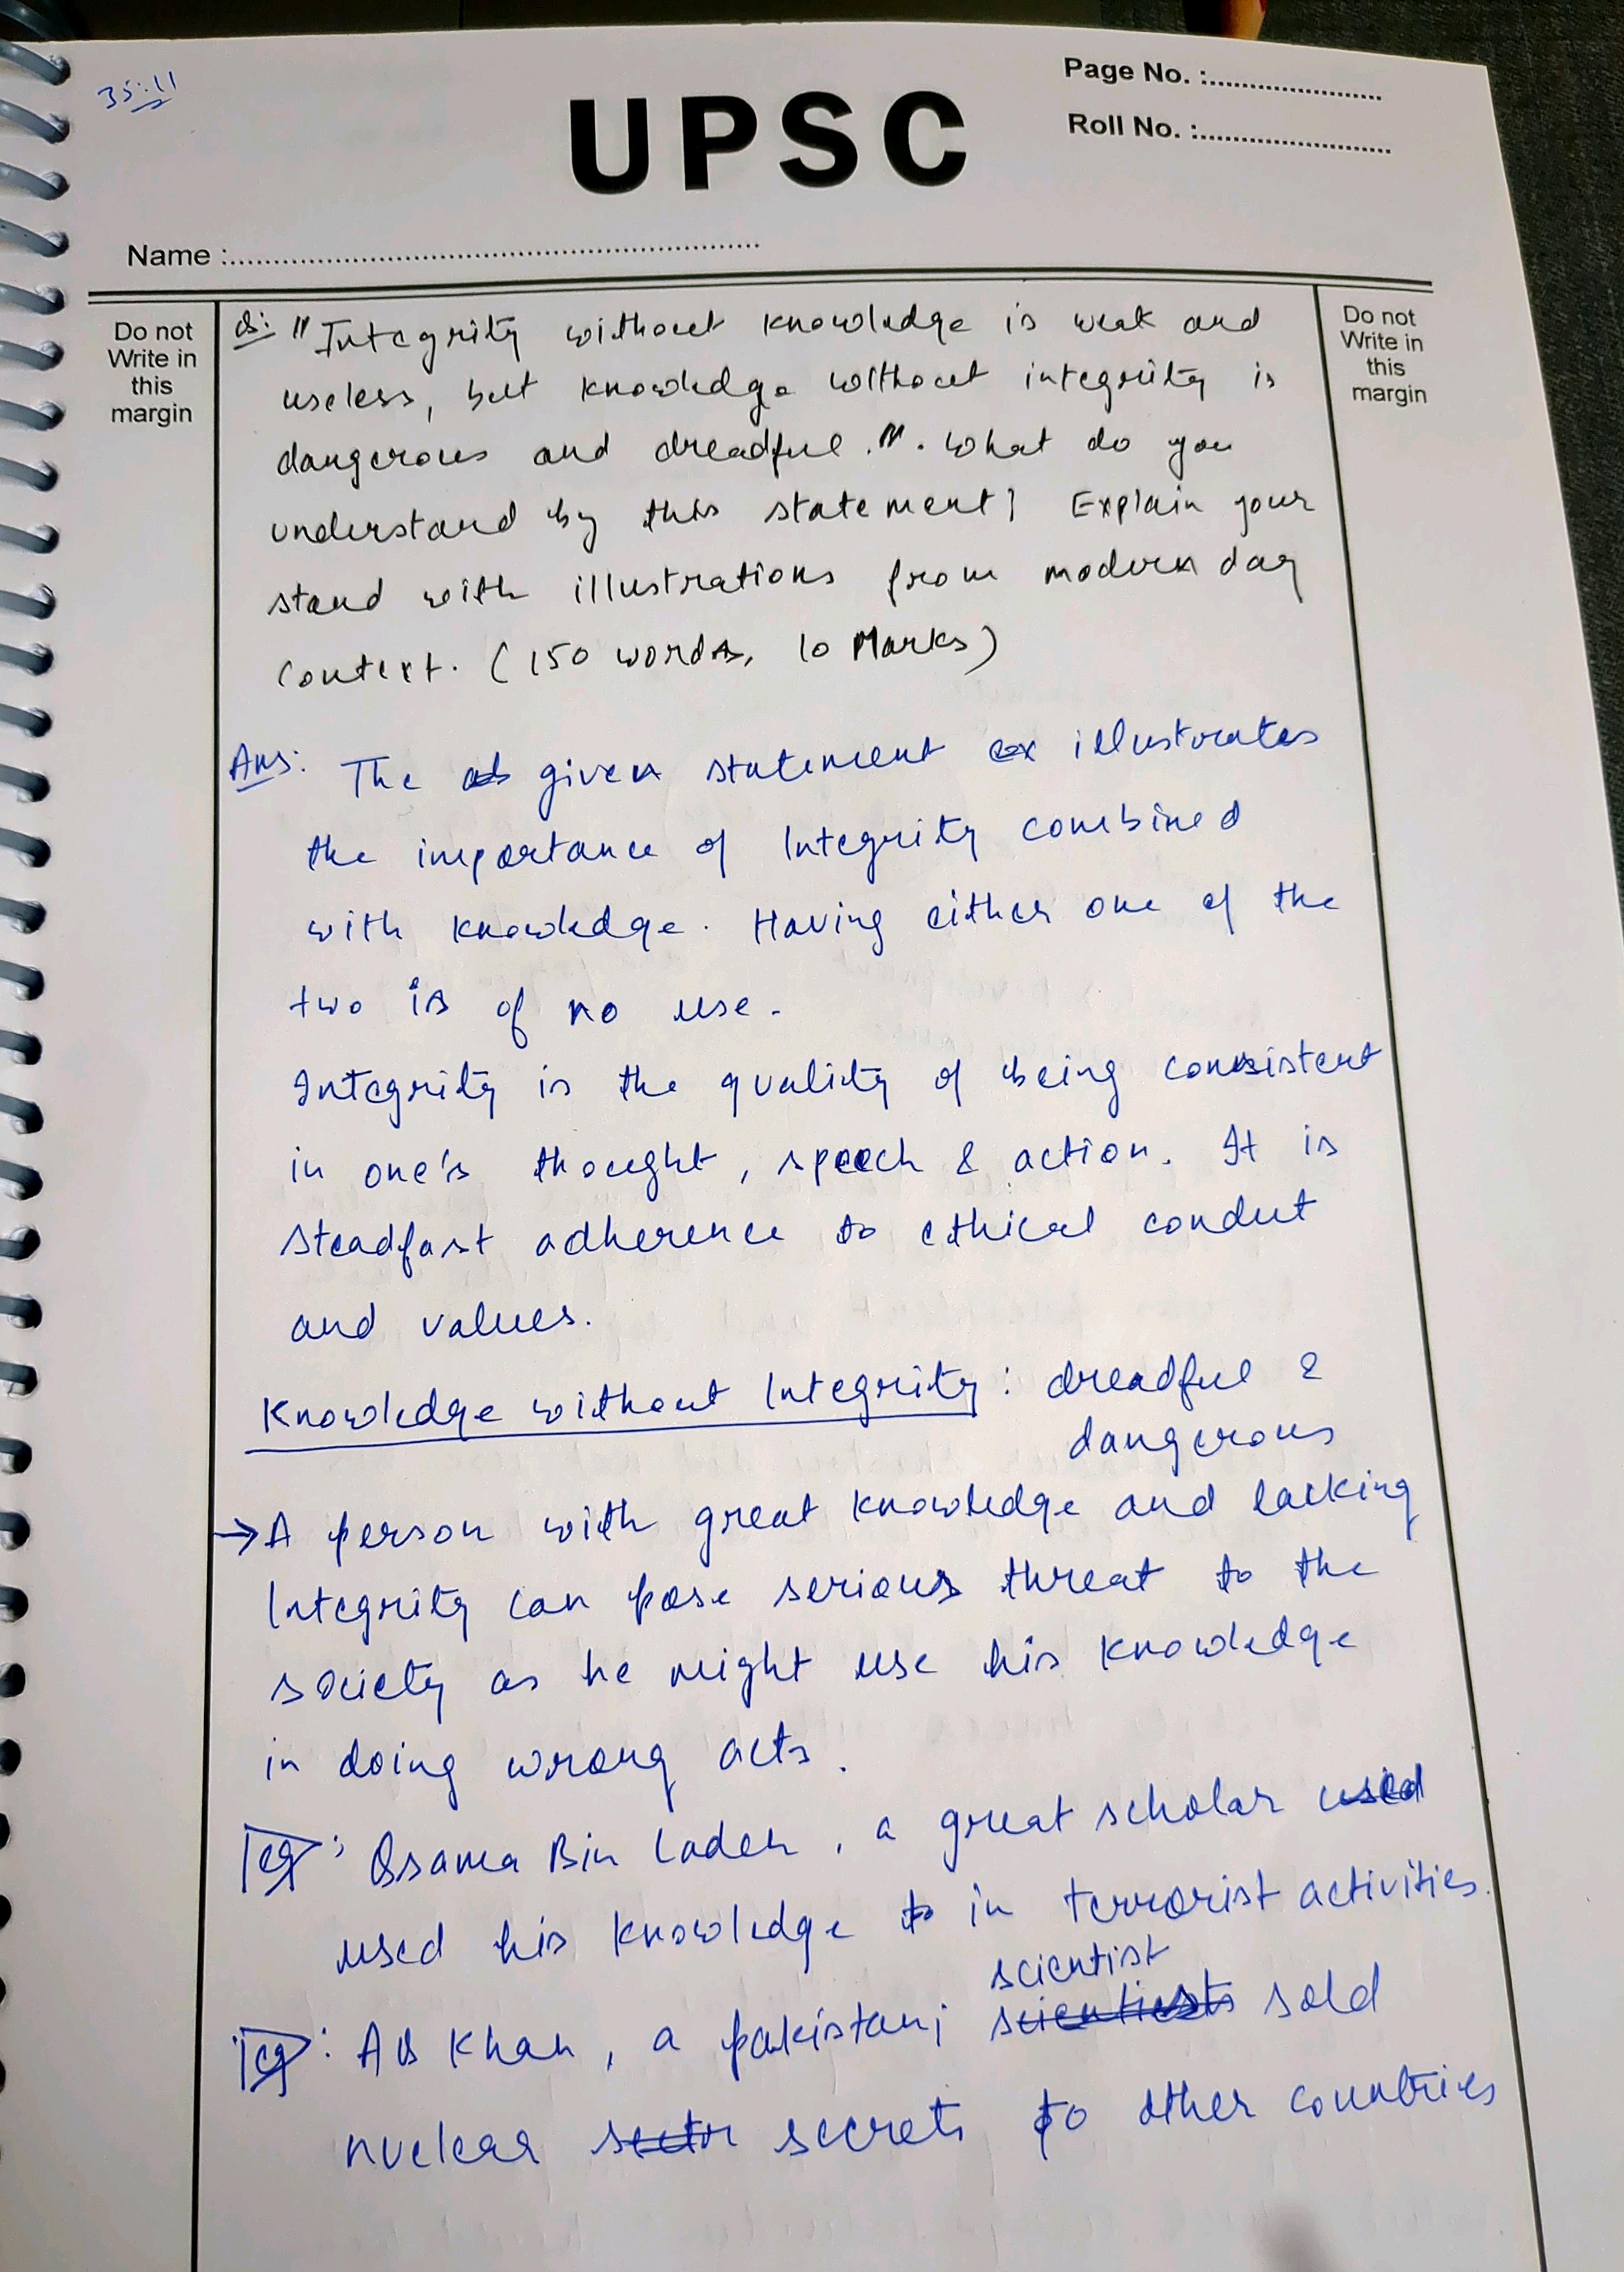 35:11
UPSC
Page No. :........................
Roll No. :..........................
Name :..............................................................
Do not
Write in
this
margin
Do not
Write in
this
margin
Q: "Integrity without knowledge is weak and
useless, but knowledge without integrity is
dangerous and dreadful.". What do you
understand by this statement? Explain your
stand with illustrations from modern day
context. (150 words, 10 Marks)
Ans: The given statement illustrates
the importance of Integrity combined
with knowledge. Having either one of the
two is of no use.
Integrity is the quality of being consistent
in one's thought, speech & action. It is
steadfast adherence to ethical conduct
and values.
Knowledge without Integrity : dreadful &
dangerous
→ A person with great knowledge and lacking
Integrity can pose serious threat to the
society as he might use his knowledge
in doing wrong acts.
eg: Osama Bin Laden, a great scholar used
used his knowledge in terrorist activities.
scientist
eg: AQ Khan, a pakistani scientists sold
nuclear secrets to other countries